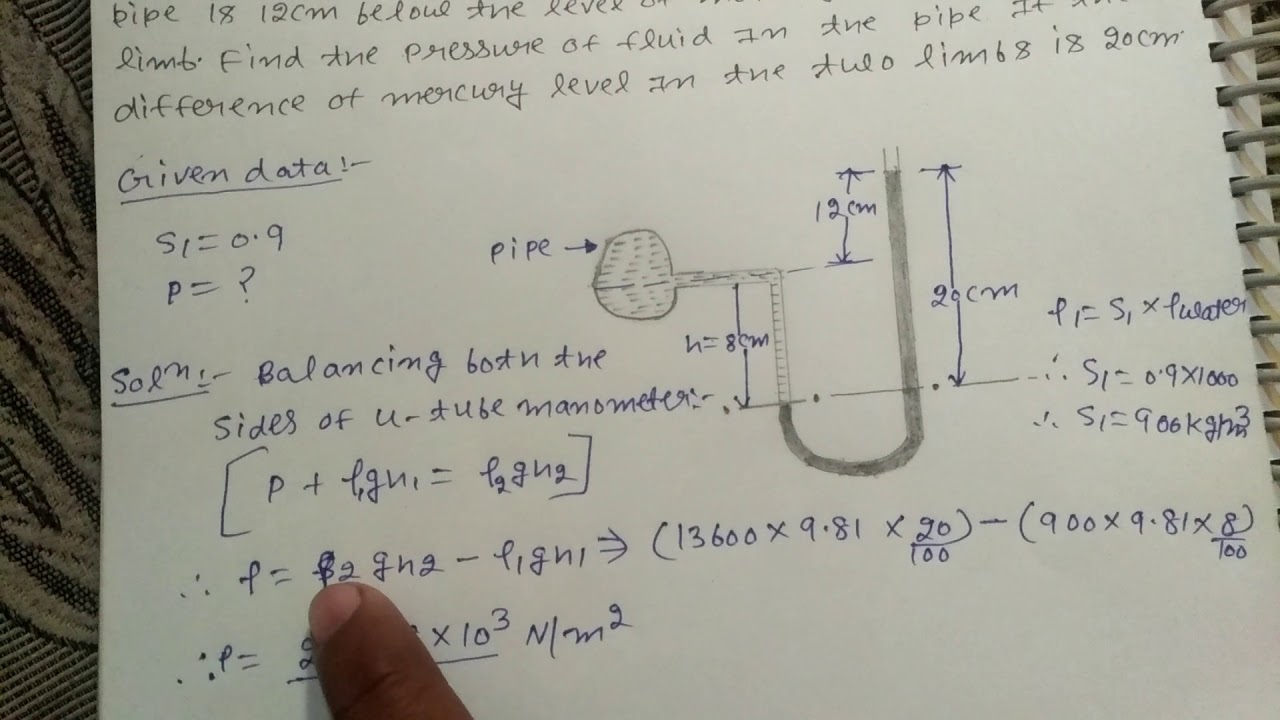 pipe is 12cm below the level of
limb. Find the pressure of fluid in the pipe if the
difference of mercury level in the two limbs is 20cm.
Given data:-
S1 = 0.9
P = ?
pipe →
12cm
20cm
h=8cm
ρ1 = S1 × ρwater
∴ S1 = 0.9×1000
∴ S1 = 900kg/m3
Soln:- Balancing both the
sides of u-tube manometer:-
[P + ρ1gh1 = ρ2gh2]
∴ P = ρ2gh2 - ρ1gh1 ⇒ (13600 × 9.81 × 20/100) - (900 × 9.81 × 8/100)
∴ P = ×10³ N/m²